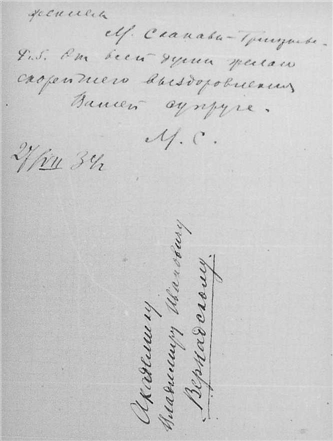 М. Сканави-Григорьева.
P.S. От всей души желаю
скорейшего выздоровления
Вашей супруге.
М. С.
27/VII 34 г
Академику
Владимиру Ивановичу
Вернадскому.